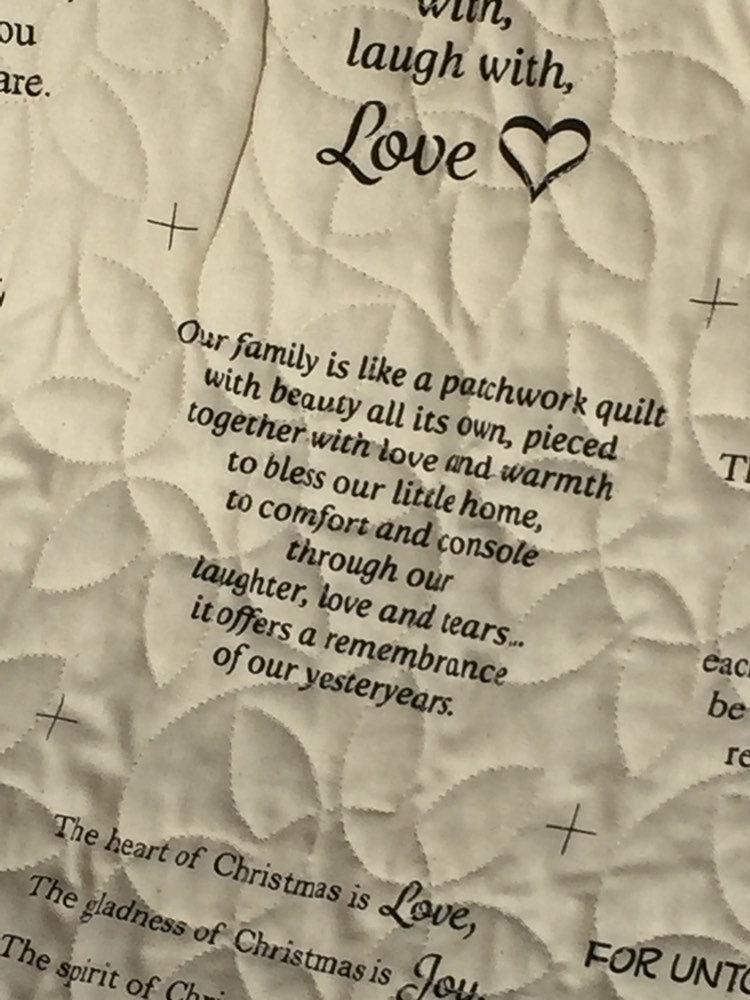 with,
laugh with,
Love
are.
Our family is like a patchwork quilt
with beauty all its own, pieced
together with love and warmth
to bless our little home,
to comfort and console
through our
laughter, love and tears...
it offers a remembrance
of our yesteryears.
be
The heart of Christmas is Love,
The gladness of Christmas is Joy,
The spirit of
FOR